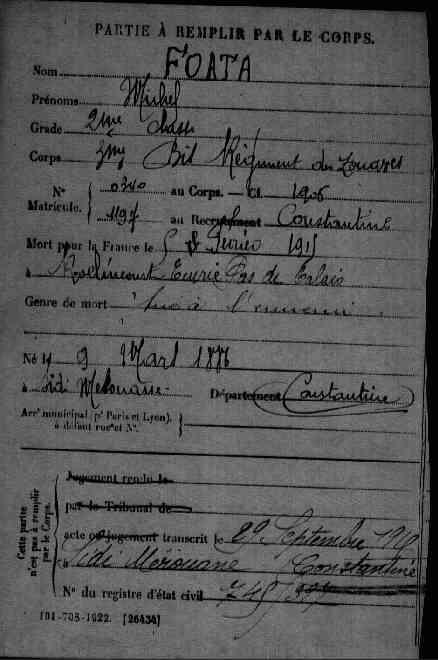 PARTIE À REMPLIR PAR LE CORPS.
Nom FOATA
Prénoms Michel
Grade 2me Classe
Corps 3me Bis Régiment de Zouaves
N° 0340 au Corps. — Cl. 1906
Matricule. 1197 au Recrutement Constantine
Mort pour la France le 5 février 1915
à Roclincourt Ecurie Pas de Calais
Genre de mort Tué à l'ennemi
Né le 9 Mars 1886
à Sidi Merouane Département Constantine
Arrt municipal (pr Paris et Lyon),
à défaut rue et N°.
Cette partie
n'est pas à remplir
par le Corps.
Jugement rendu le
par le Tribunal de
acte ou jugement transcrit le 29 Septembre
à Sidi Mérouane Constantine
N° du registre d'état civil
101-708-1922. [26434]